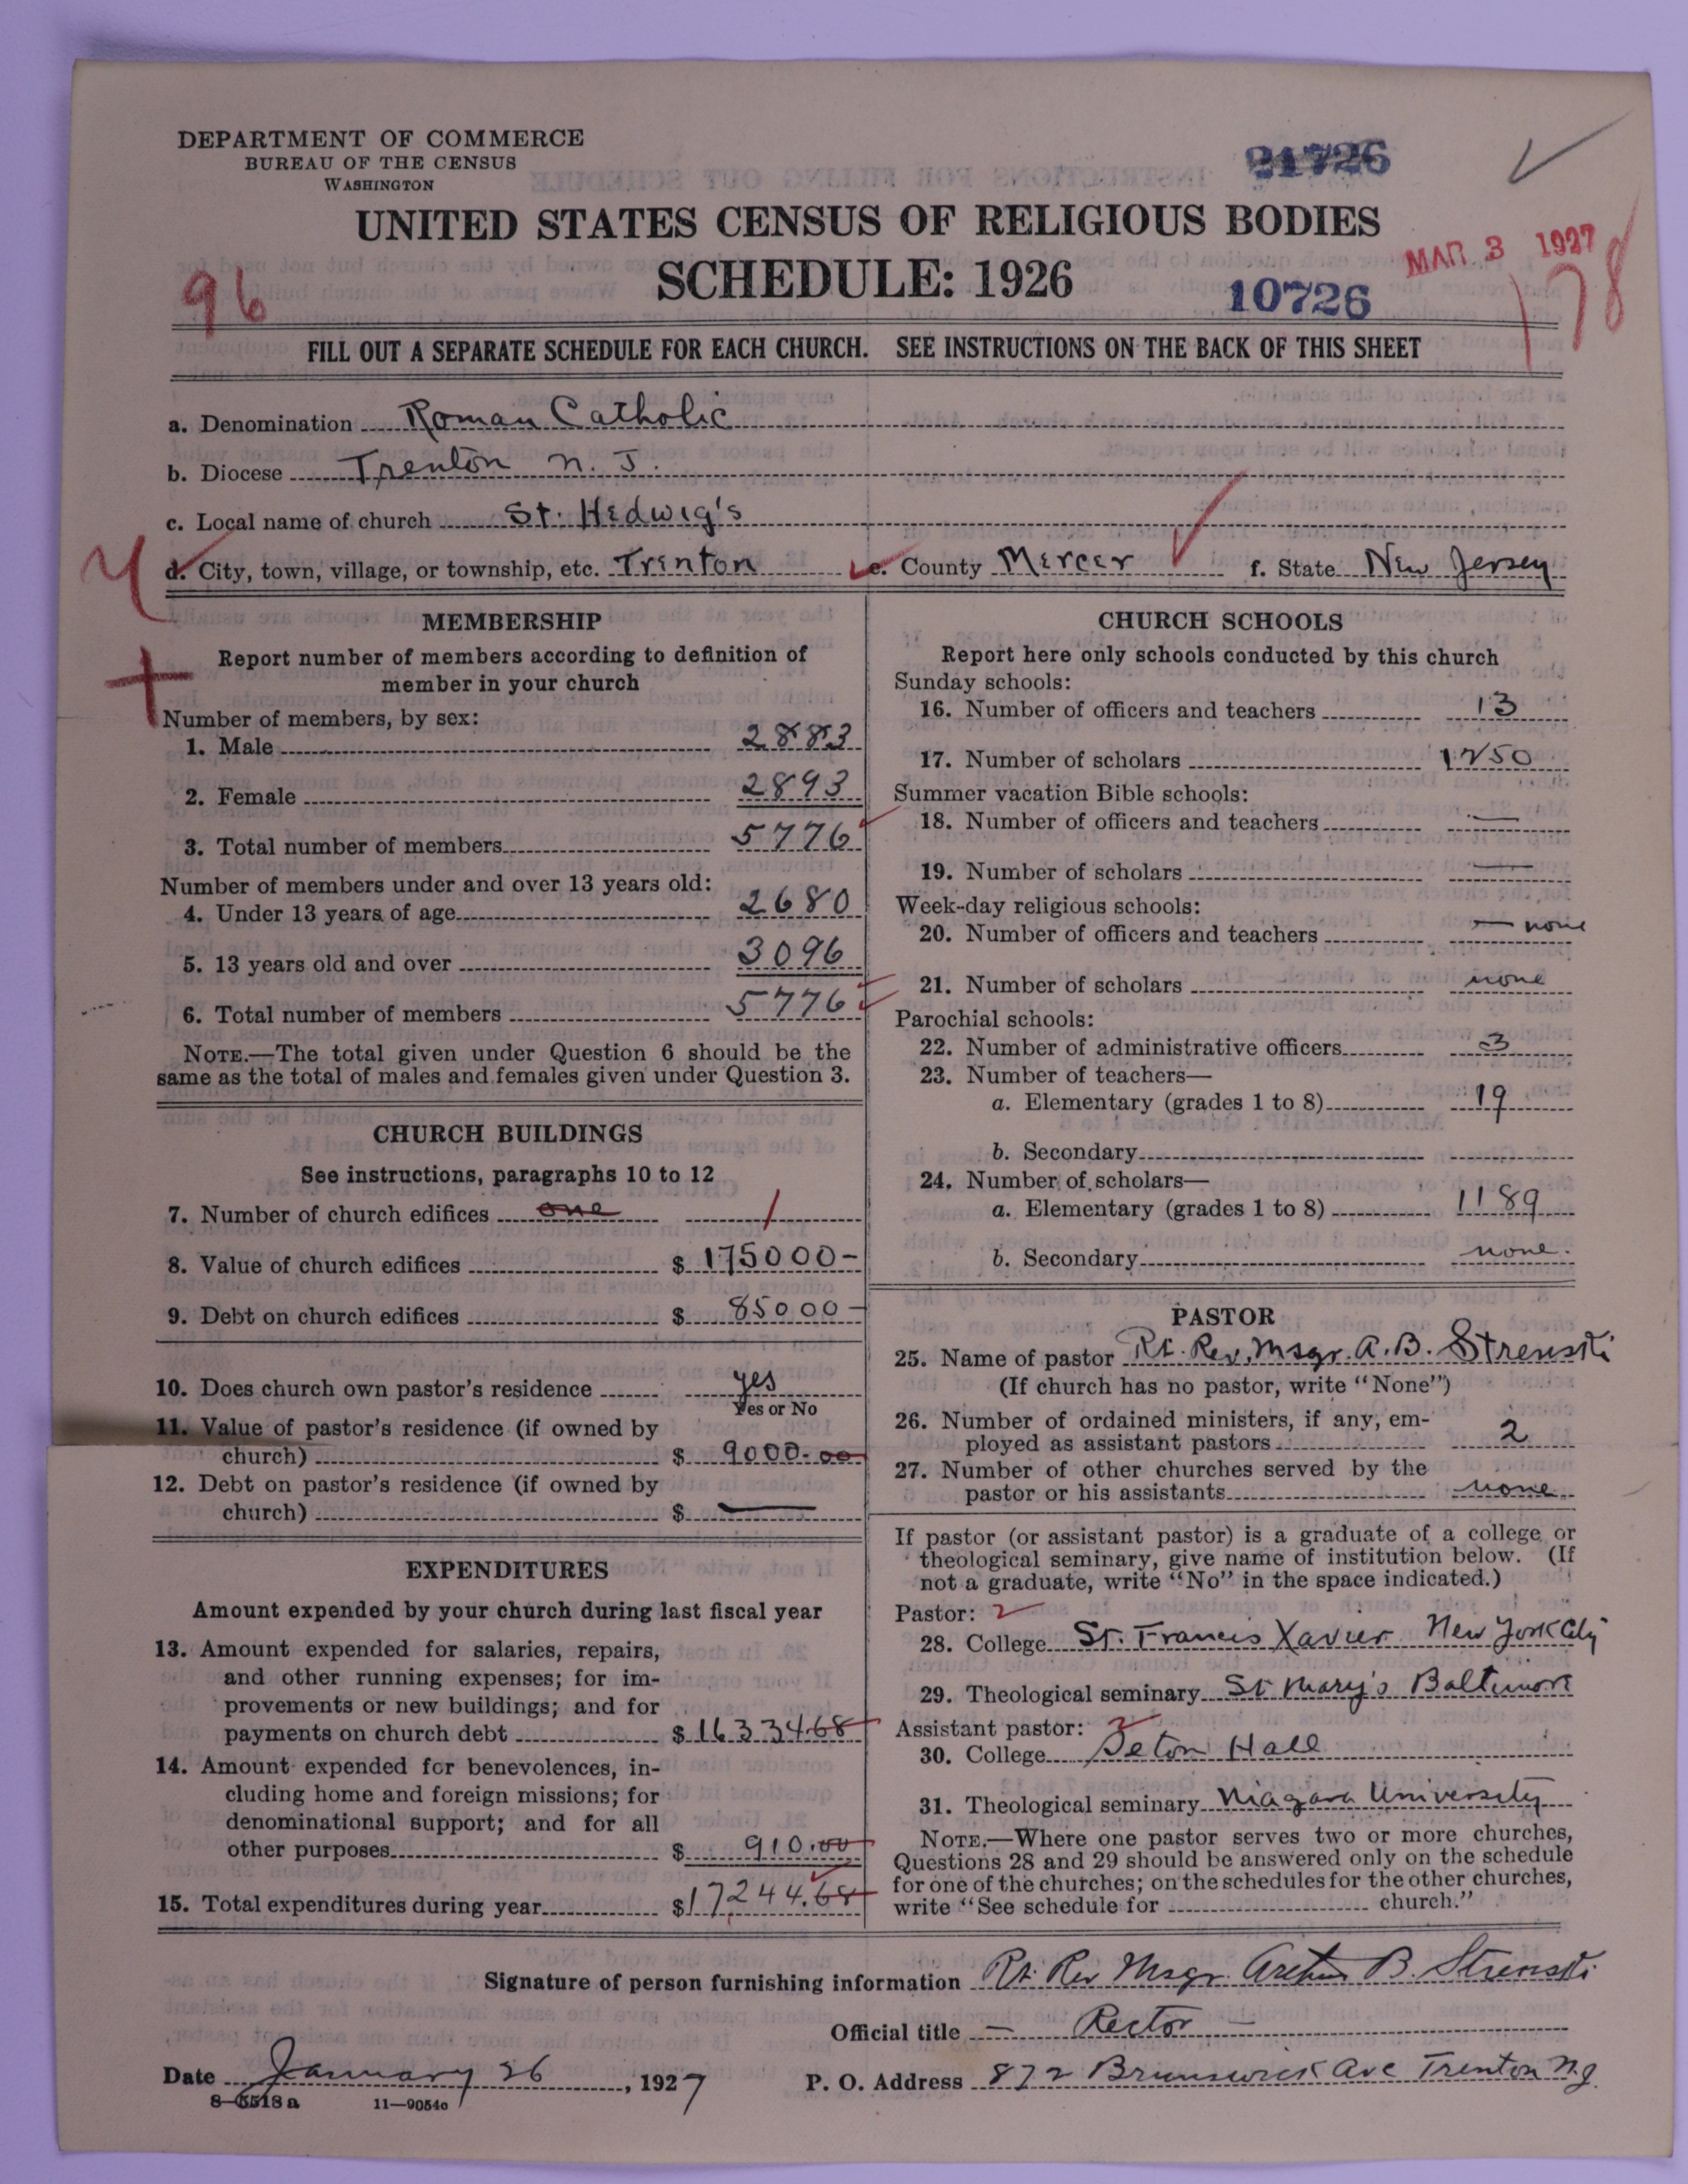 DEPARTMENT OF COMMERCE
BUREAU OF THE CENSUS
WASHINGTON
21726
UNITED STATES CENSUS OF RELIGIOUS BODIES
SCHEDULE: 1926
MAR 3 1927
96
10726
178
FILL OUT A SEPARATE SCHEDULE FOR EACH CHURCH. SEE INSTRUCTIONS ON THE BACK OF THIS SHEET
a. Denomination Roman Catholic
b. Diocese Trenton N. J.
c. Local name of church St. Hedwig's
d. City, town, village, or township, etc. Trenton e. County Mercer f. State New Jersey
MEMBERSHIP
Report number of members according to definition of
member in your church
Number of members, by sex:
1. Male 2883
2. Female 2893
3. Total number of members 5776
Number of members under and over 13 years old:
4. Under 13 years of age 2680
5. 13 years old and over 3096
6. Total number of members 5776
NOTE.—The total given under Question 6 should be the
same as the total of males and females given under Question 3.
CHURCH BUILDINGS
See instructions, paragraphs 10 to 12
7. Number of church edifices one 1
8. Value of church edifices $ 175000-
9. Debt on church edifices $ 85000-
10. Does church own pastor's residence yes
Yes or No
11. Value of pastor's residence (if owned by
church) $ 9000.00
12. Debt on pastor's residence (if owned by
church) $ —
EXPENDITURES
Amount expended by your church during last fiscal year
13. Amount expended for salaries, repairs,
and other running expenses; for im-
provements or new buildings; and for
payments on church debt $ 16334.68
14. Amount expended for benevolences, in-
cluding home and foreign missions; for
denominational support; and for all
other purposes $ 910.00
15. Total expenditures during year $ 17244.68
CHURCH SCHOOLS
Report here only schools conducted by this church
Sunday schools:
16. Number of officers and teachers 13
17. Number of scholars 1250
Summer vacation Bible schools:
18. Number of officers and teachers —
19. Number of scholars —
Week-day religious schools:
20. Number of officers and teachers — none
21. Number of scholars none
Parochial schools:
22. Number of administrative officers 3
23. Number of teachers—
a. Elementary (grades 1 to 8) 19
b. Secondary
24. Number of scholars—
a. Elementary (grades 1 to 8) 1189
b. Secondary none.
PASTOR
25. Name of pastor Rt. Rev. Msgr. A. B. Strenski
(If church has no pastor, write "None")
26. Number of ordained ministers, if any, em-
ployed as assistant pastors 2
27. Number of other churches served by the
pastor or his assistants none
If pastor (or assistant pastor) is a graduate of a college or
theological seminary, give name of institution below. (If
not a graduate, write "No" in the space indicated.)
Pastor: 2
28. College St. Francis Xavier New York City
29. Theological seminary St Mary's Baltimore
Assistant pastor: 2
30. College Seton Hall
31. Theological seminary Niagara University
NOTE.—Where one pastor serves two or more churches,
Questions 28 and 29 should be answered only on the schedule
for one of the churches; on the schedules for the other churches,
write "See schedule for church."
Signature of person furnishing information Rt. Rev Msgr. Arthur B. Strenski
Official title — Rector —
Date January 26, 1927 P. O. Address 872 Brunswick Ave Trenton N.J.
8-5518a 11—9054a